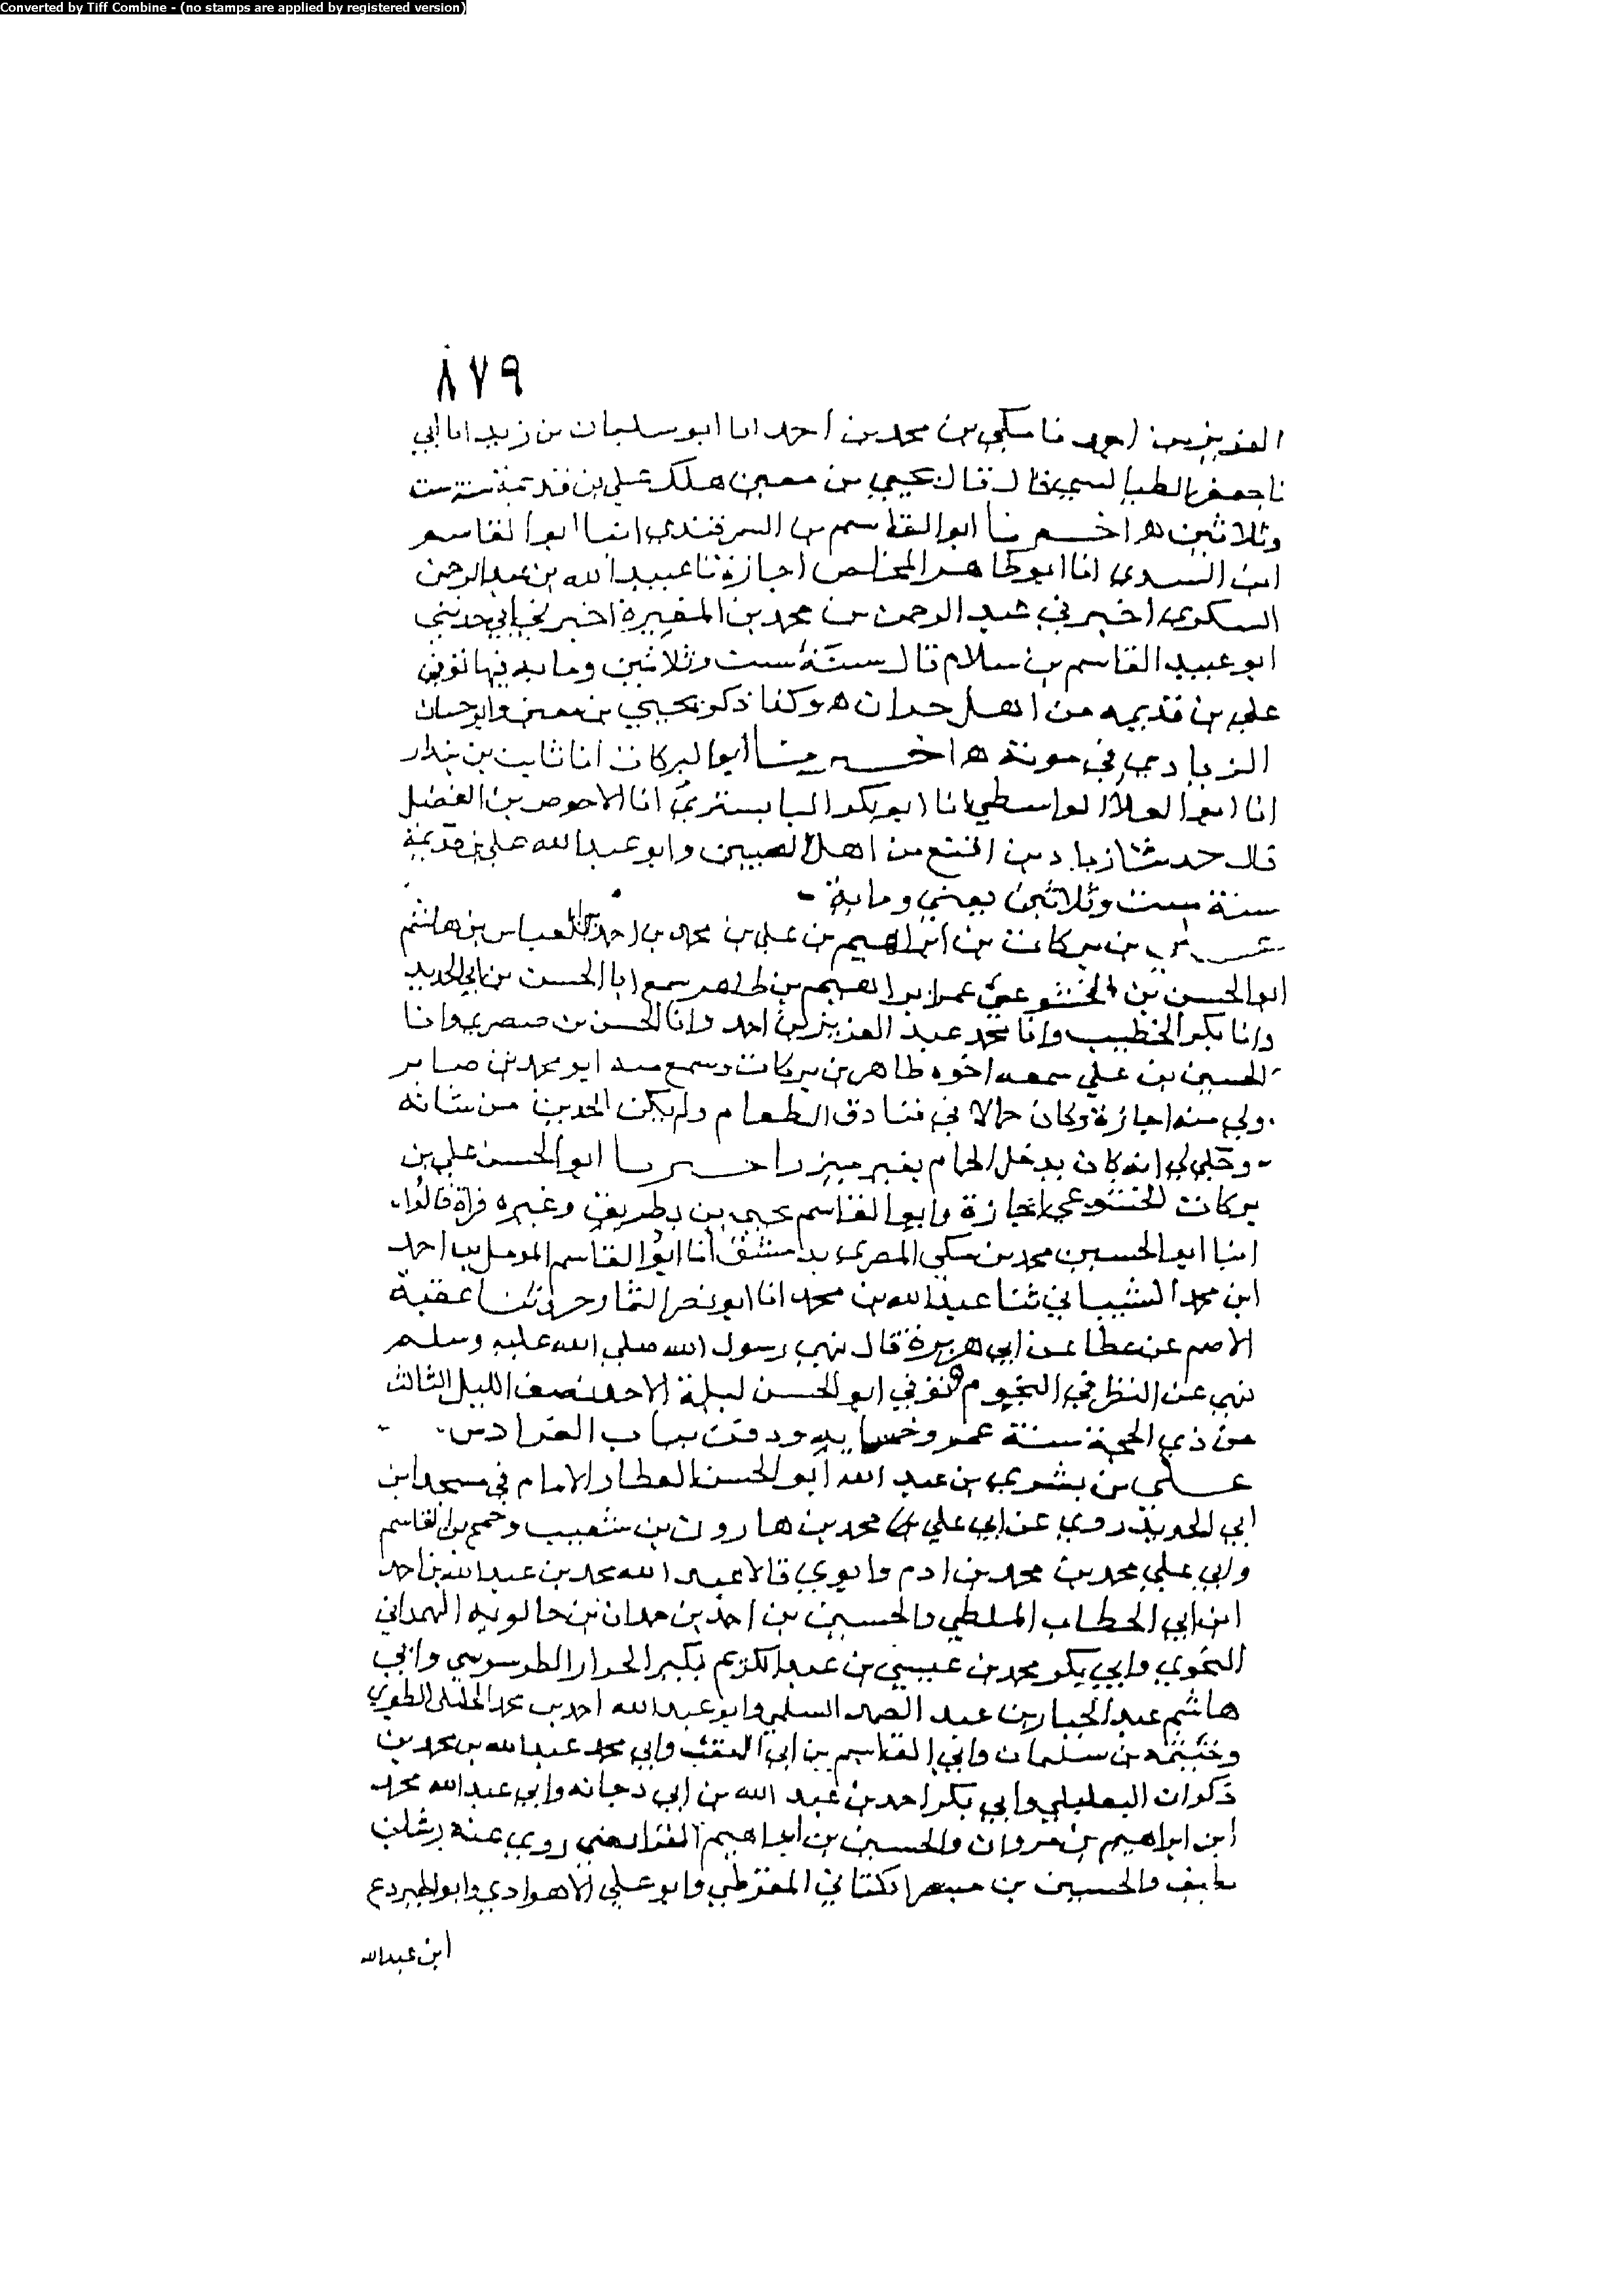 Converted by Tiff Combine - (no stamps are applied by registered version)
٨٧٩
العزيز بن احمد نا مكي بن محمد بن احمد انا ابو سليمان بن زبد انا ابي
نا جعفر الطيالسي قال قال يحيى بن معين هلك علي بن بذيمة سنة ست
وثلاثين ه اخبرنا ابو القاسم بن السمرقندي انا ابو القاسم
ابن السري انا ابو طاهر المخلص اجازة نا عبيد الله بن عبد الرحمن
السكري اخبرني عبد الرحمن بن محمد بن المغيرة اخبرني ابي حدثني
ابو عبيد القاسم بن سلام قال سنة ست وثلاثين ومايه فيها توفي
علي بن بذيمه من اهل حران ه وكذا ذكر يحيى بن معين وابو حسان
الزيادي في موته ه اخبرنا ابو البركات انا ثابت بن بندار
انا ابو العلا الواسطي انا ابو بكر البابسيري انا الاحوص بن الفضل
قال حدثنا زياد من اهل وابو عبد الله علي بن بذيمة
سنة ست وثلاثين يعني وماية -
علي بن بركات بن ابراهيم بن علي بن محمد بن احمد بن العباس بن هاشم
ابو الحسن بن الخشوعي عم ابراهيم بن طاهر سمع ابا الحسن بن ابي الحديد
وانا بكر الخطيب وانا محمد عبد العزيز بن احمد وانا الحسن بن صصري وانا
الحسين بن علي سمعه اخوه طاهر بن بركات وسمع منه ابو محمد بن صابر
ولي منه اجازة وكان حمالا في فنادق الطعام ولم يكن الحديث من شانه
وحكي لي انه كان يدخل الحمام بغير ميزر اخبرنا ابو الحسن علي بن
بركات الخشوعي اجازة وابو القاسم يحيى بن بطريق وغيره قراة قالوا
انا ابو الحسين محمد بن مكي المصري بدمشق انا ابو القاسم المومل بن احمد
ابن محمد الشيباني ثنا عبد الله بن محمد انا ابو نصر التمار حدثنا عقبة
الاصم عن عطا عن ابي هريرة قال نهى رسول الله صلى الله عليه وسلم
نهى عن النظر في النجوم ه توفي ابو الحسن ليلة الاحد نصف الليل الثالث
من ذي الحجة سنة عشر وخمسمايه ودفن بباب الفرادس
علي بن بشرى بن عبد الله ابو الحسن العطار الامام في مسجد ابن
ابي الحديد روى عن ابي علي محمد بن هارون بن شعيب وجمح بن القاسم
وابي علي محمد بن محمد بن ادم عبد الله محمد بن عبد الله بن احمد
ابن ابي الخطاب الملطي والحسين بن احمد بن حمدان بن خالويه الهمداني
النحوي وابي بكر محمد بن عيسى بن عبد الكريم بكير الحرار الطرسوسي وابي
هاشم عبد الجبار بن عبد الصمد السلمي وابو عبد الله احمد بن محمد
وخيثمه بن سليمان وابي القاسم بن ابي العقب وابي محمد عبد الله بن محمد بن
ذكوان البعلبكي وابي بكر احمد بن عبد الله بن ابي دجانه وابي عبد الله محمد
ابن ابراهيم بن مروان والحسين بن ابراهيم الفرايضي روى عنه رشا بن
نظيف والحسين بن مبشر الكتاني المقرطي وابو علي الاهوازي وابو
ابن عبدالله